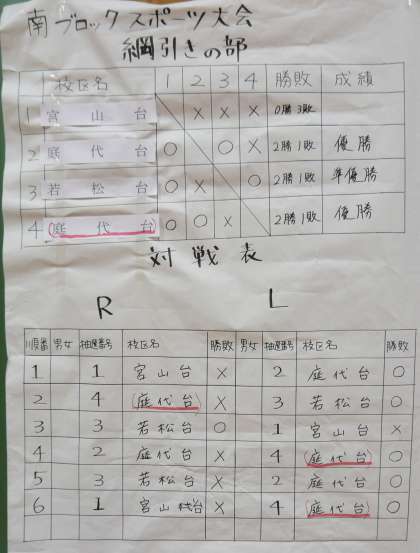 南ブロックスポーツ大会
綱引きの部
枝区名 1 2 3 4 勝敗 成績
1 宮山台 × × × 0勝3敗
2 庭代台 ○ ○ × 2勝1敗 優勝
3 若松台 ○ × ○ 2勝1敗 準優勝
4 (庭代台) ○ ○ × 2勝1敗 優勝
対戦表
R L
順番 男女 抽選番号 枝区名 勝敗 男女 抽選番号 枝区名 勝敗
1 1 宮山台 × 2 庭代台 ○
2 4 (庭代台) × 3 若松台 ○
3 3 若松台 ○ 1 宮山台 ×
4 2 庭代台 × 4 (庭代台) ○
5 3 若松台 × 2 庭代台 ○
6 1 宮山台 × 4 (庭代台) ○